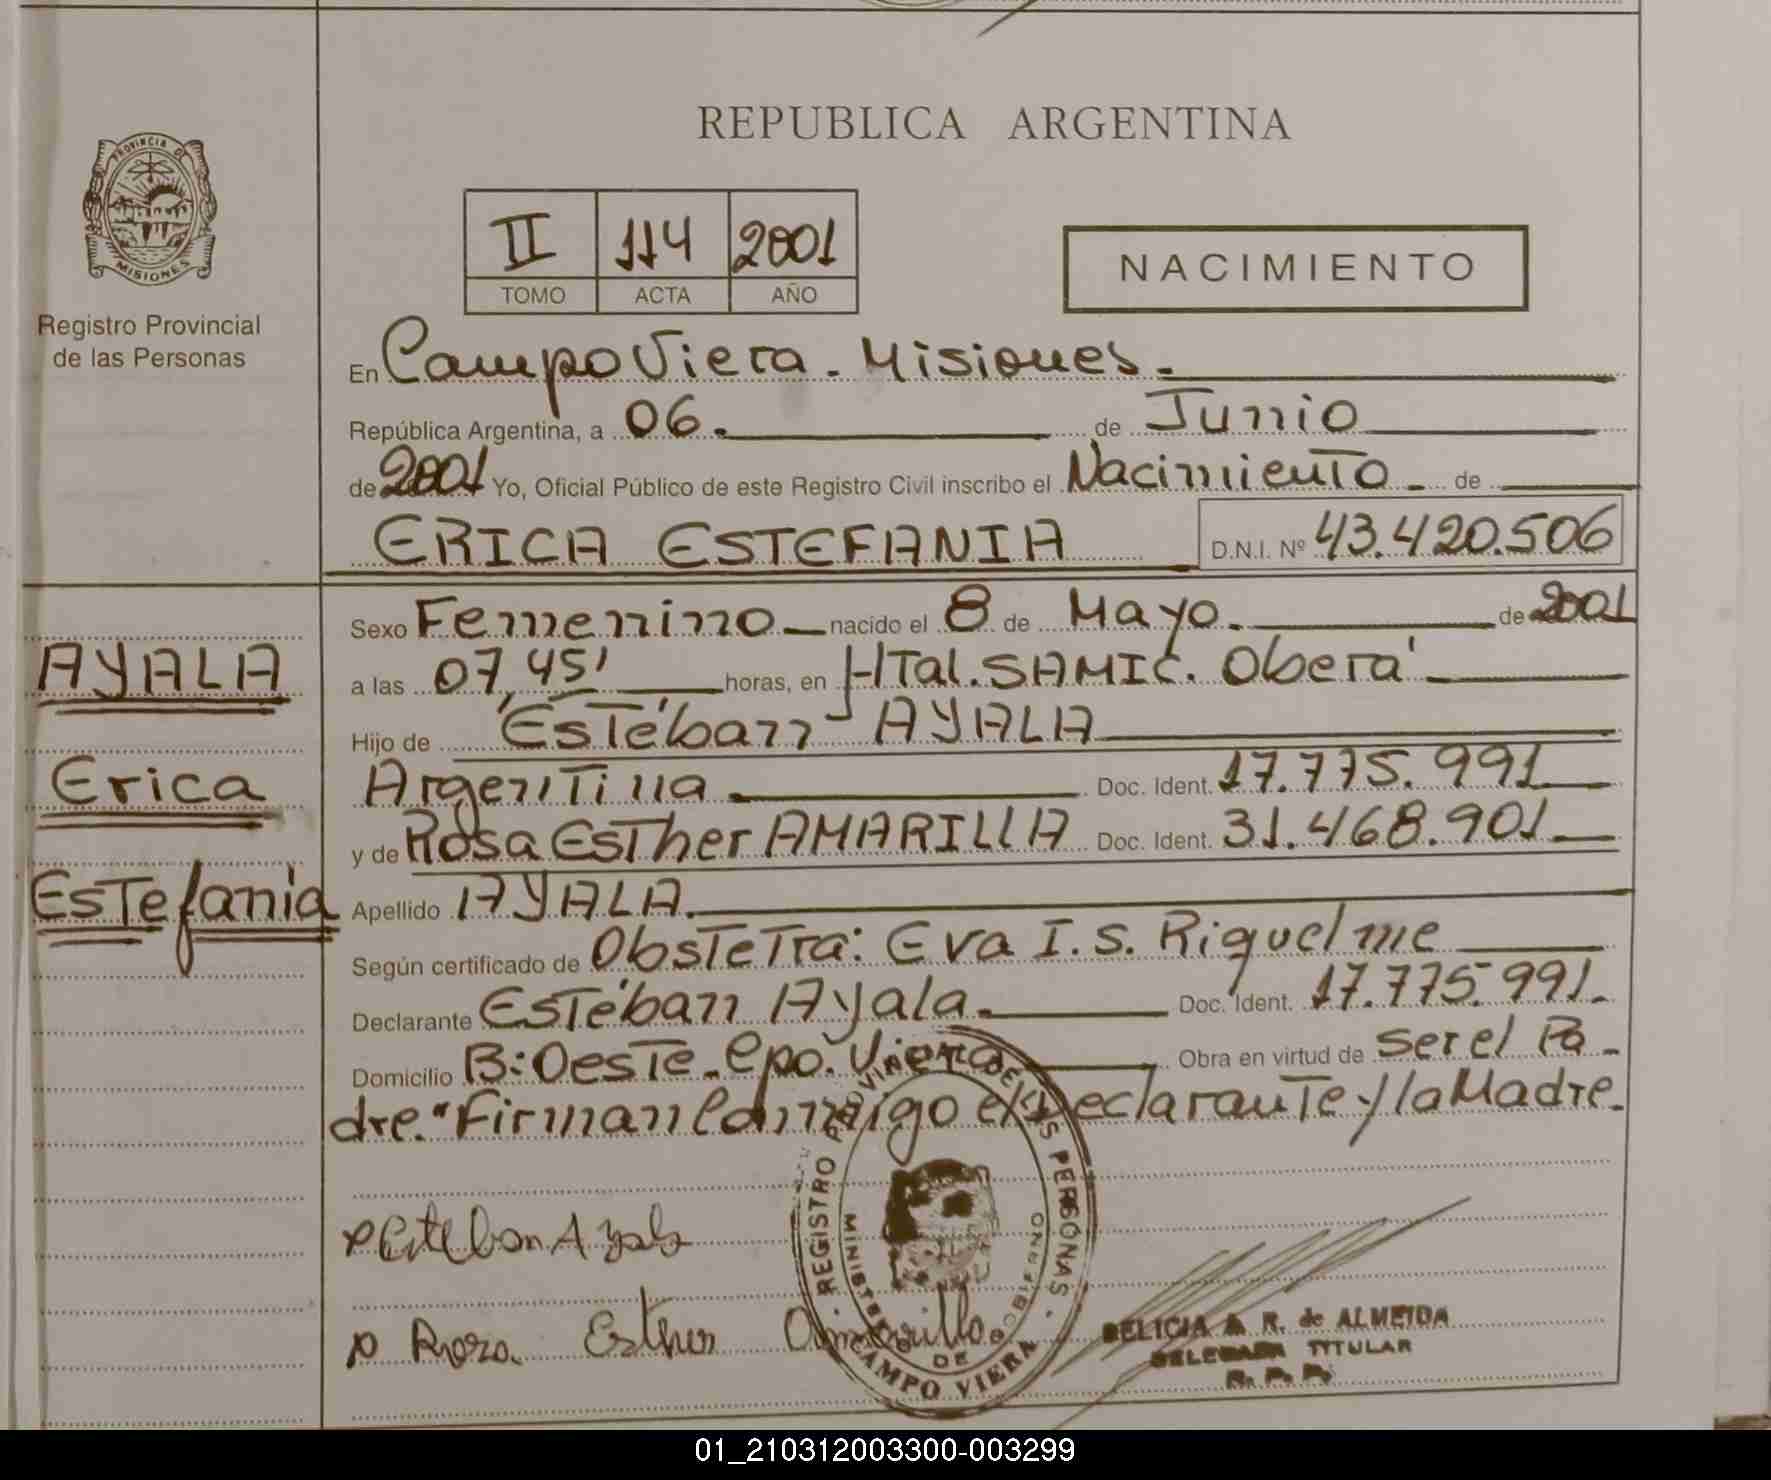 REPUBLICA ARGENTINA
PROVINCIA DE
MISIONES
Registro Provincial
de las Personas
II 114 2001
TOMO ACTA AÑO
NACIMIENTO
En Campo Viera. Misiones.
República Argentina, a 06. de Junio
de 2001 Yo, Oficial Público de este Registro Civil inscribo el Nacimiento de
ERICA ESTEFANIA D.N.I. Nº 43.420.506
AYALA
Erica
Estefania
Sexo Femenino nacido el 8 de Mayo. de 2001
a las 07,45' horas, en Htal. SAMIC. Oberá
Hijo de Estéban AYALA
Argentina Doc. Ident. 17.775.991
y de Rosa Esther AMARILLA Doc. Ident. 31.468.901
Apellido AYALA.
Según certificado de Obstetra: Eva I. S. Riquelme
Declarante Estéban Ayala. Doc. Ident. 17.775.991.
Domicilio B: Oeste. Cpo. Viera Obra en virtud de ser el Pa-
dre." Firman Conmigo el Declarante y la Madre.
Esteban Ayala
Rosa Esther Amarilla
REGISTRO PROVINCIAL DE LAS PERSONAS
MINISTERIO DE GOBIERNO
CAMPO VIERA
DELICIA A. R. de ALMEIDA
DELEGADA TITULAR
R. P. P.
01_210312003300-003299